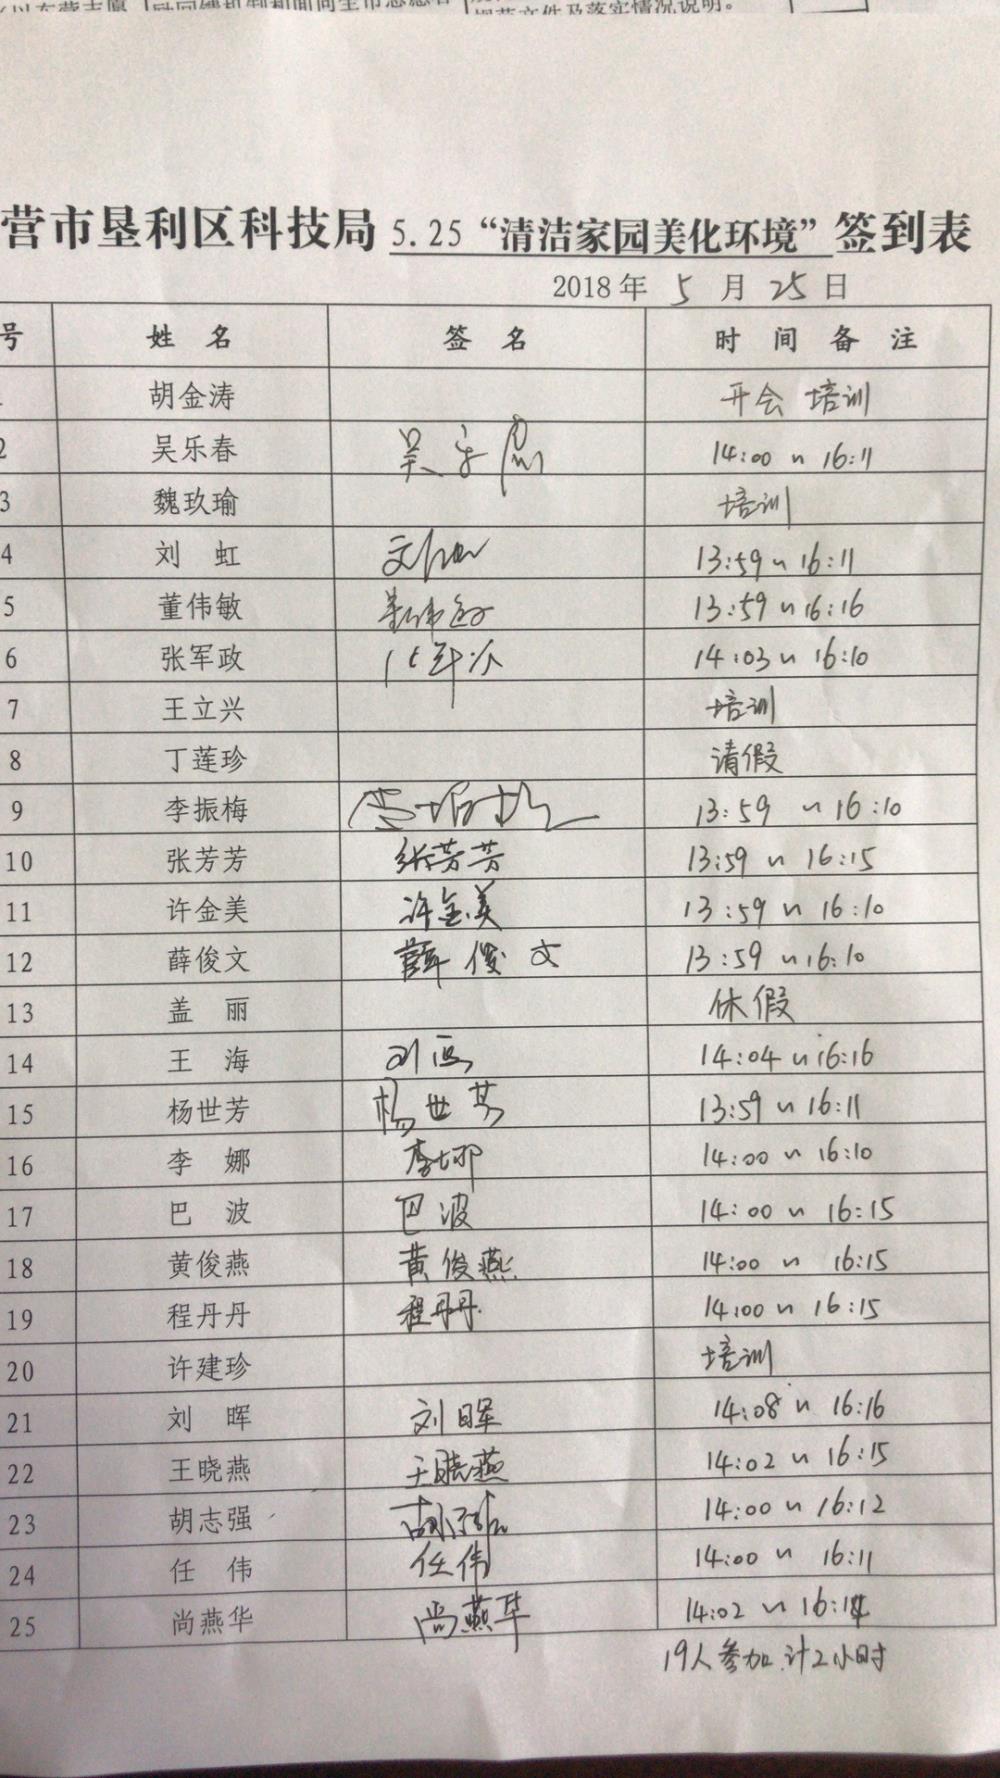 营市垦利区科技局 5.25“清洁家园美化环境”签到表
2018年 5 月 25 日
号 姓 名 签 名 时 间 备 注
胡金涛 开会 培训
2 吴乐春 吴乐春 14:00 ~ 16:11
3 魏玖瑜 培训
4 刘 虹 13:59 ~ 16:11
5 董伟敏 董伟敏 13:59 ~ 16:16
6 张军政 14:03 ~ 16:10
7 王立兴 培训
8 丁莲珍 请假
9 李振梅 李振梅 13:59 ~ 16:10
10 张芳芳 张芳芳 13:59 ~ 16:15
11 许金美 许金美 13:59 ~ 16:10
12 薛俊文 薛俊文 13:59 ~ 16:10
13 盖 丽 休假
14 王 海 14:04 ~ 16:16
15 杨世芳 杨世芳 13:59 ~ 16:11
16 李 娜 李娜 14:00 ~ 16:10
17 巴 波 巴波 14:00 ~ 16:15
18 黄俊燕 黄俊燕 14:00 ~ 16:15
19 程丹丹 程丹丹 14:00 ~ 16:15
20 许建珍 培训
21 刘 晖 刘晖 14:08 ~ 16:16
22 王晓燕 王晓燕 14:02 ~ 16:15
23 胡志强 胡志强 14:00 ~ 16:12
24 任 伟 任伟 14:00 ~ 16:11
25 尚燕华 尚燕华 14:02 ~ 16:14
19人参加 计2小时